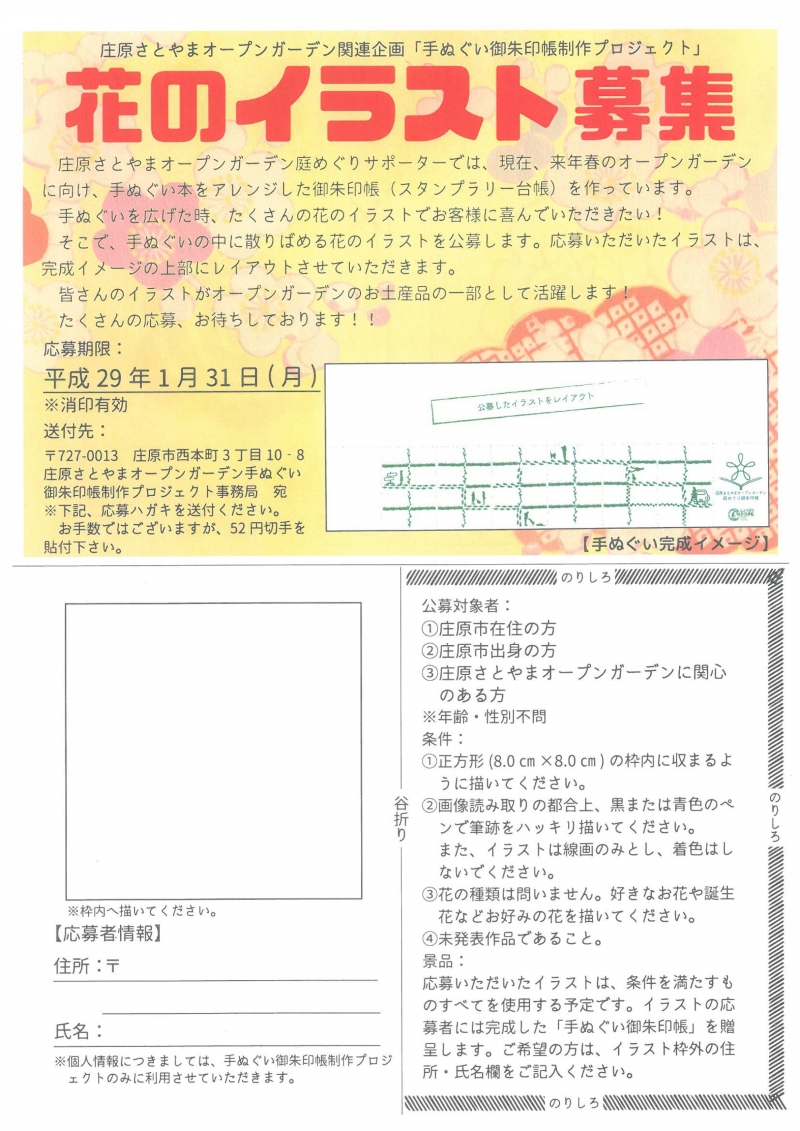 庄原さとやまオープンガーデン関連企画「手ぬぐい御朱印帳制作プロジェクト」
花のイラスト募集
庄原さとやまオープンガーデン庭めぐりサポーターでは、現在、来年春のオープンガーデン
に向け、手ぬぐい本をアレンジした御朱印帳（スタンプラリー台帳）を作っています。
手ぬぐいを広げた時、たくさんの花のイラストでお客様に喜んでいただきたい！
そこで、手ぬぐいの中に散りばめる花のイラストを公募します。応募いただいたイラストは、
完成イメージの上部にレイアウトさせていただきます。
皆さんのイラストがオープンガーデンのお土産品の一部として活躍します！
たくさんの応募、お待ちしております！！
応募期限：
平成 29 年 1 月 31 日 ( 月 )
※消印有効
送付先：
〒727-0013　庄原市西本町 3 丁目 10 - 8
庄原さとやまオープンガーデン手ぬぐい
御朱印帳制作プロジェクト事務局　宛
※下記、応募ハガキを送付ください。
お手数ではございますが、52 円切手を
貼付下さい。
公募したイラストをレイアウト
庄原さとやまオープンガーデン
【手ぬぐい完成イメージ】
※枠内へ描いてください。
【応募者情報】
住所：〒
氏名：
※個人情報につきましては、手ぬぐい御朱印帳制作プロジ
ェクトのみに利用させていただきます。
谷折り
のりしろ
公募対象者：
①庄原市在住の方
②庄原市出身の方
③庄原さとやまオープンガーデンに関心
のある方
※年齢・性別不問
条件：
①正方形 (8.0 ㎝ ×8.0 ㎝ ) の枠内に収まるよ
うに描いてください。
②画像読み取りの都合上、黒または青色のペ
ンで筆跡をハッキリ描いてください。
また、イラストは線画のみとし、着色はし
ないでください。
③花の種類は問いません。好きなお花や誕生
花などお好みの花を描いてください。
④未発表作品であること。
景品：
応募いただいたイラストは、条件を満たすも
のすべてを使用する予定です。イラストの応
募者には完成した「手ぬぐい御朱印帳」を贈
呈します。ご希望の方は、イラスト枠外の住
所・氏名欄をご記入ください。
のりしろ
のりしろ